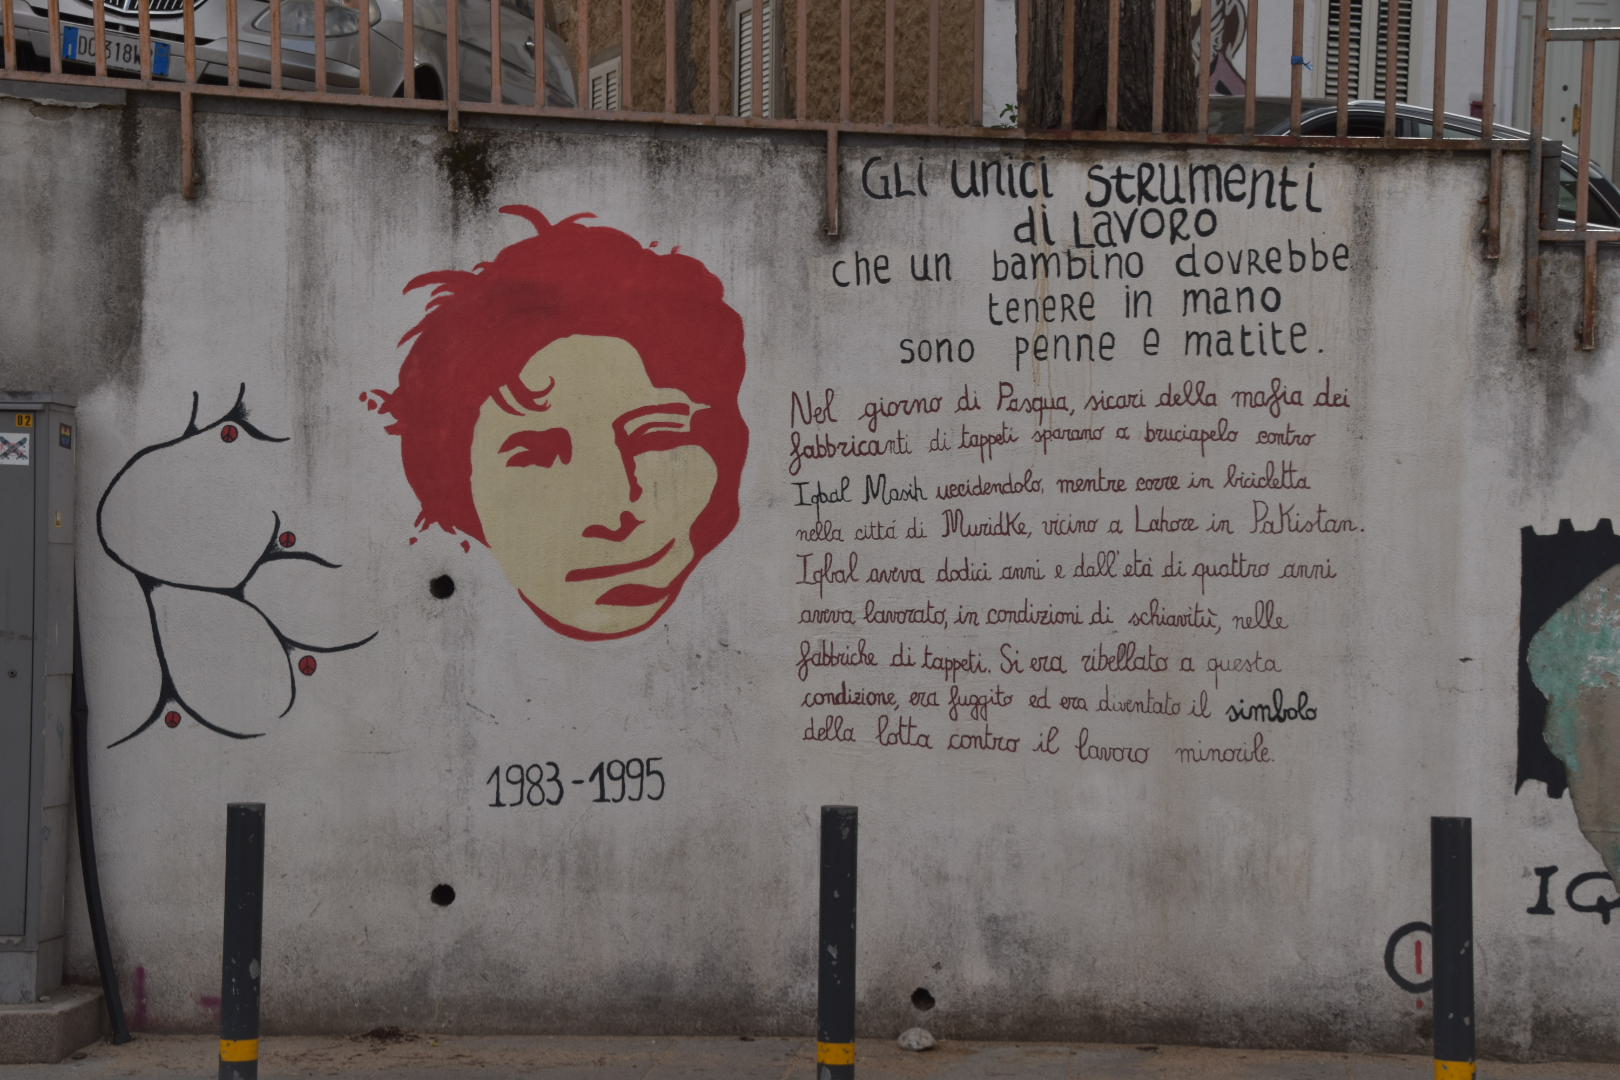 DC 318W
02
GLI UNICI STRUMENTI
di LAVORO
che un bambino dovREbbE
tENERE in mano
sono penne e matite.
Nel giorno di Pasqua, sicari della mafia dei
fabbricanti di tappeti sparano a bruciapelo contro
Iqbal Masih uccidendolo, mentre corre in bicicletta
nella cittá di Muridke, vicino a Lahore in Pakistan.
Iqbal aveva dodici anni e dall'etá di quattro anni
aveva lavorato, in condizioni di schiavitù, nelle
fabbriche di tappeti. Si era ribellato a questa
condizione, era fuggito ed era diventato il simbolo
della lotta contro il lavoro minorile.
1983-1995
IQ